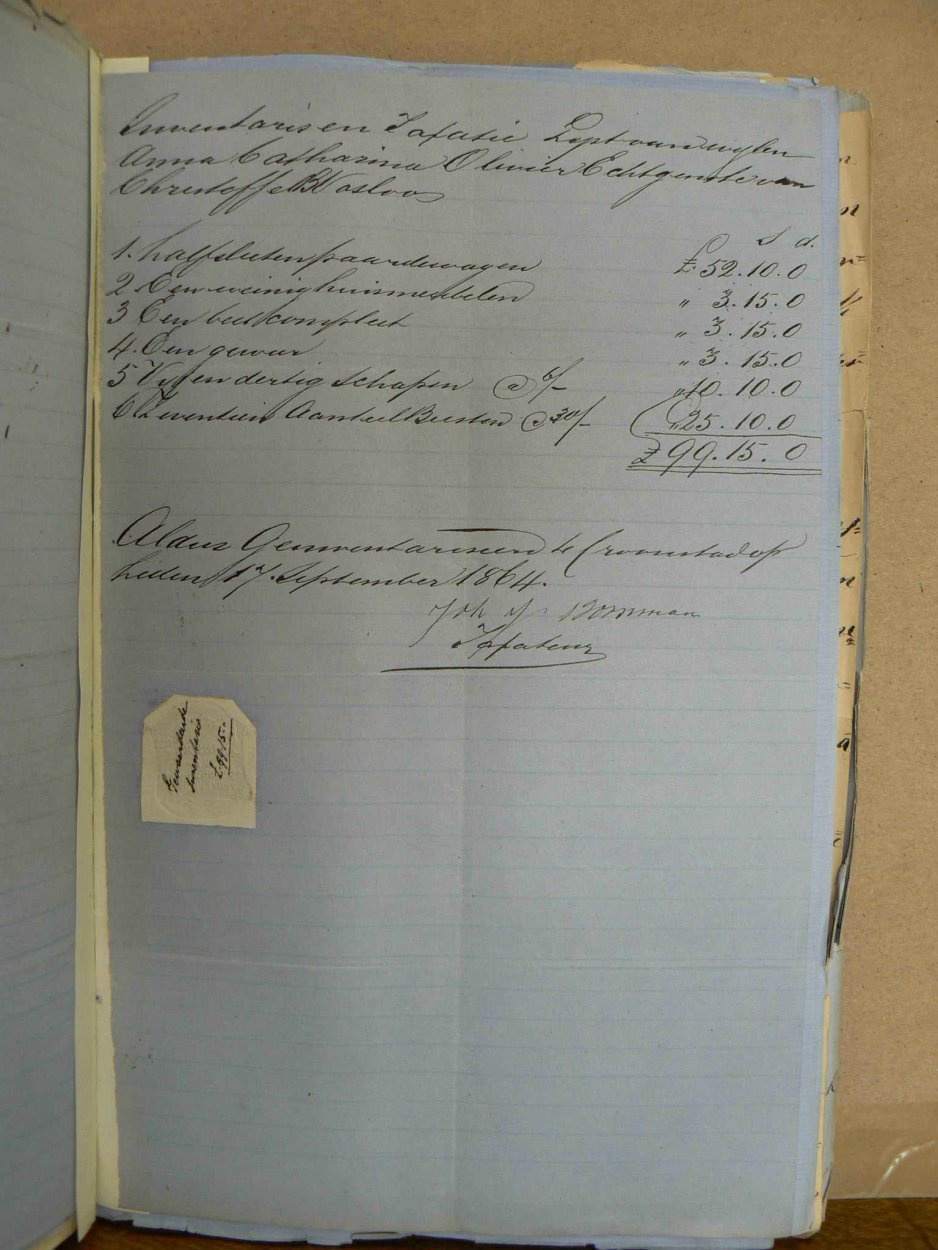 Inventaris en Taxatie Lyst van wylen
Anna Catharina Olivier Echtgenote van
Christoffel B Vosloo
£ S d.
1. halfsleten paardewagen £ 52.10.0
2 Een weinig huismeubelen " 3.15.0
3 Een bed compleet " 3.15.0
4. Een geweer " 3.15.0
5 Vyf en dertig schapen @ 6/- " 10.10.0
6 Zeventien Aanteel Beesten @ 30/- " 25.10.0
£ 99.15.0
Aldus Geinventariseerd te Croonstad op
heden 17 September 1864.
Joh J Bornman
Taxateur
Gewaardeerde
Inventaris
£ 99.15.0